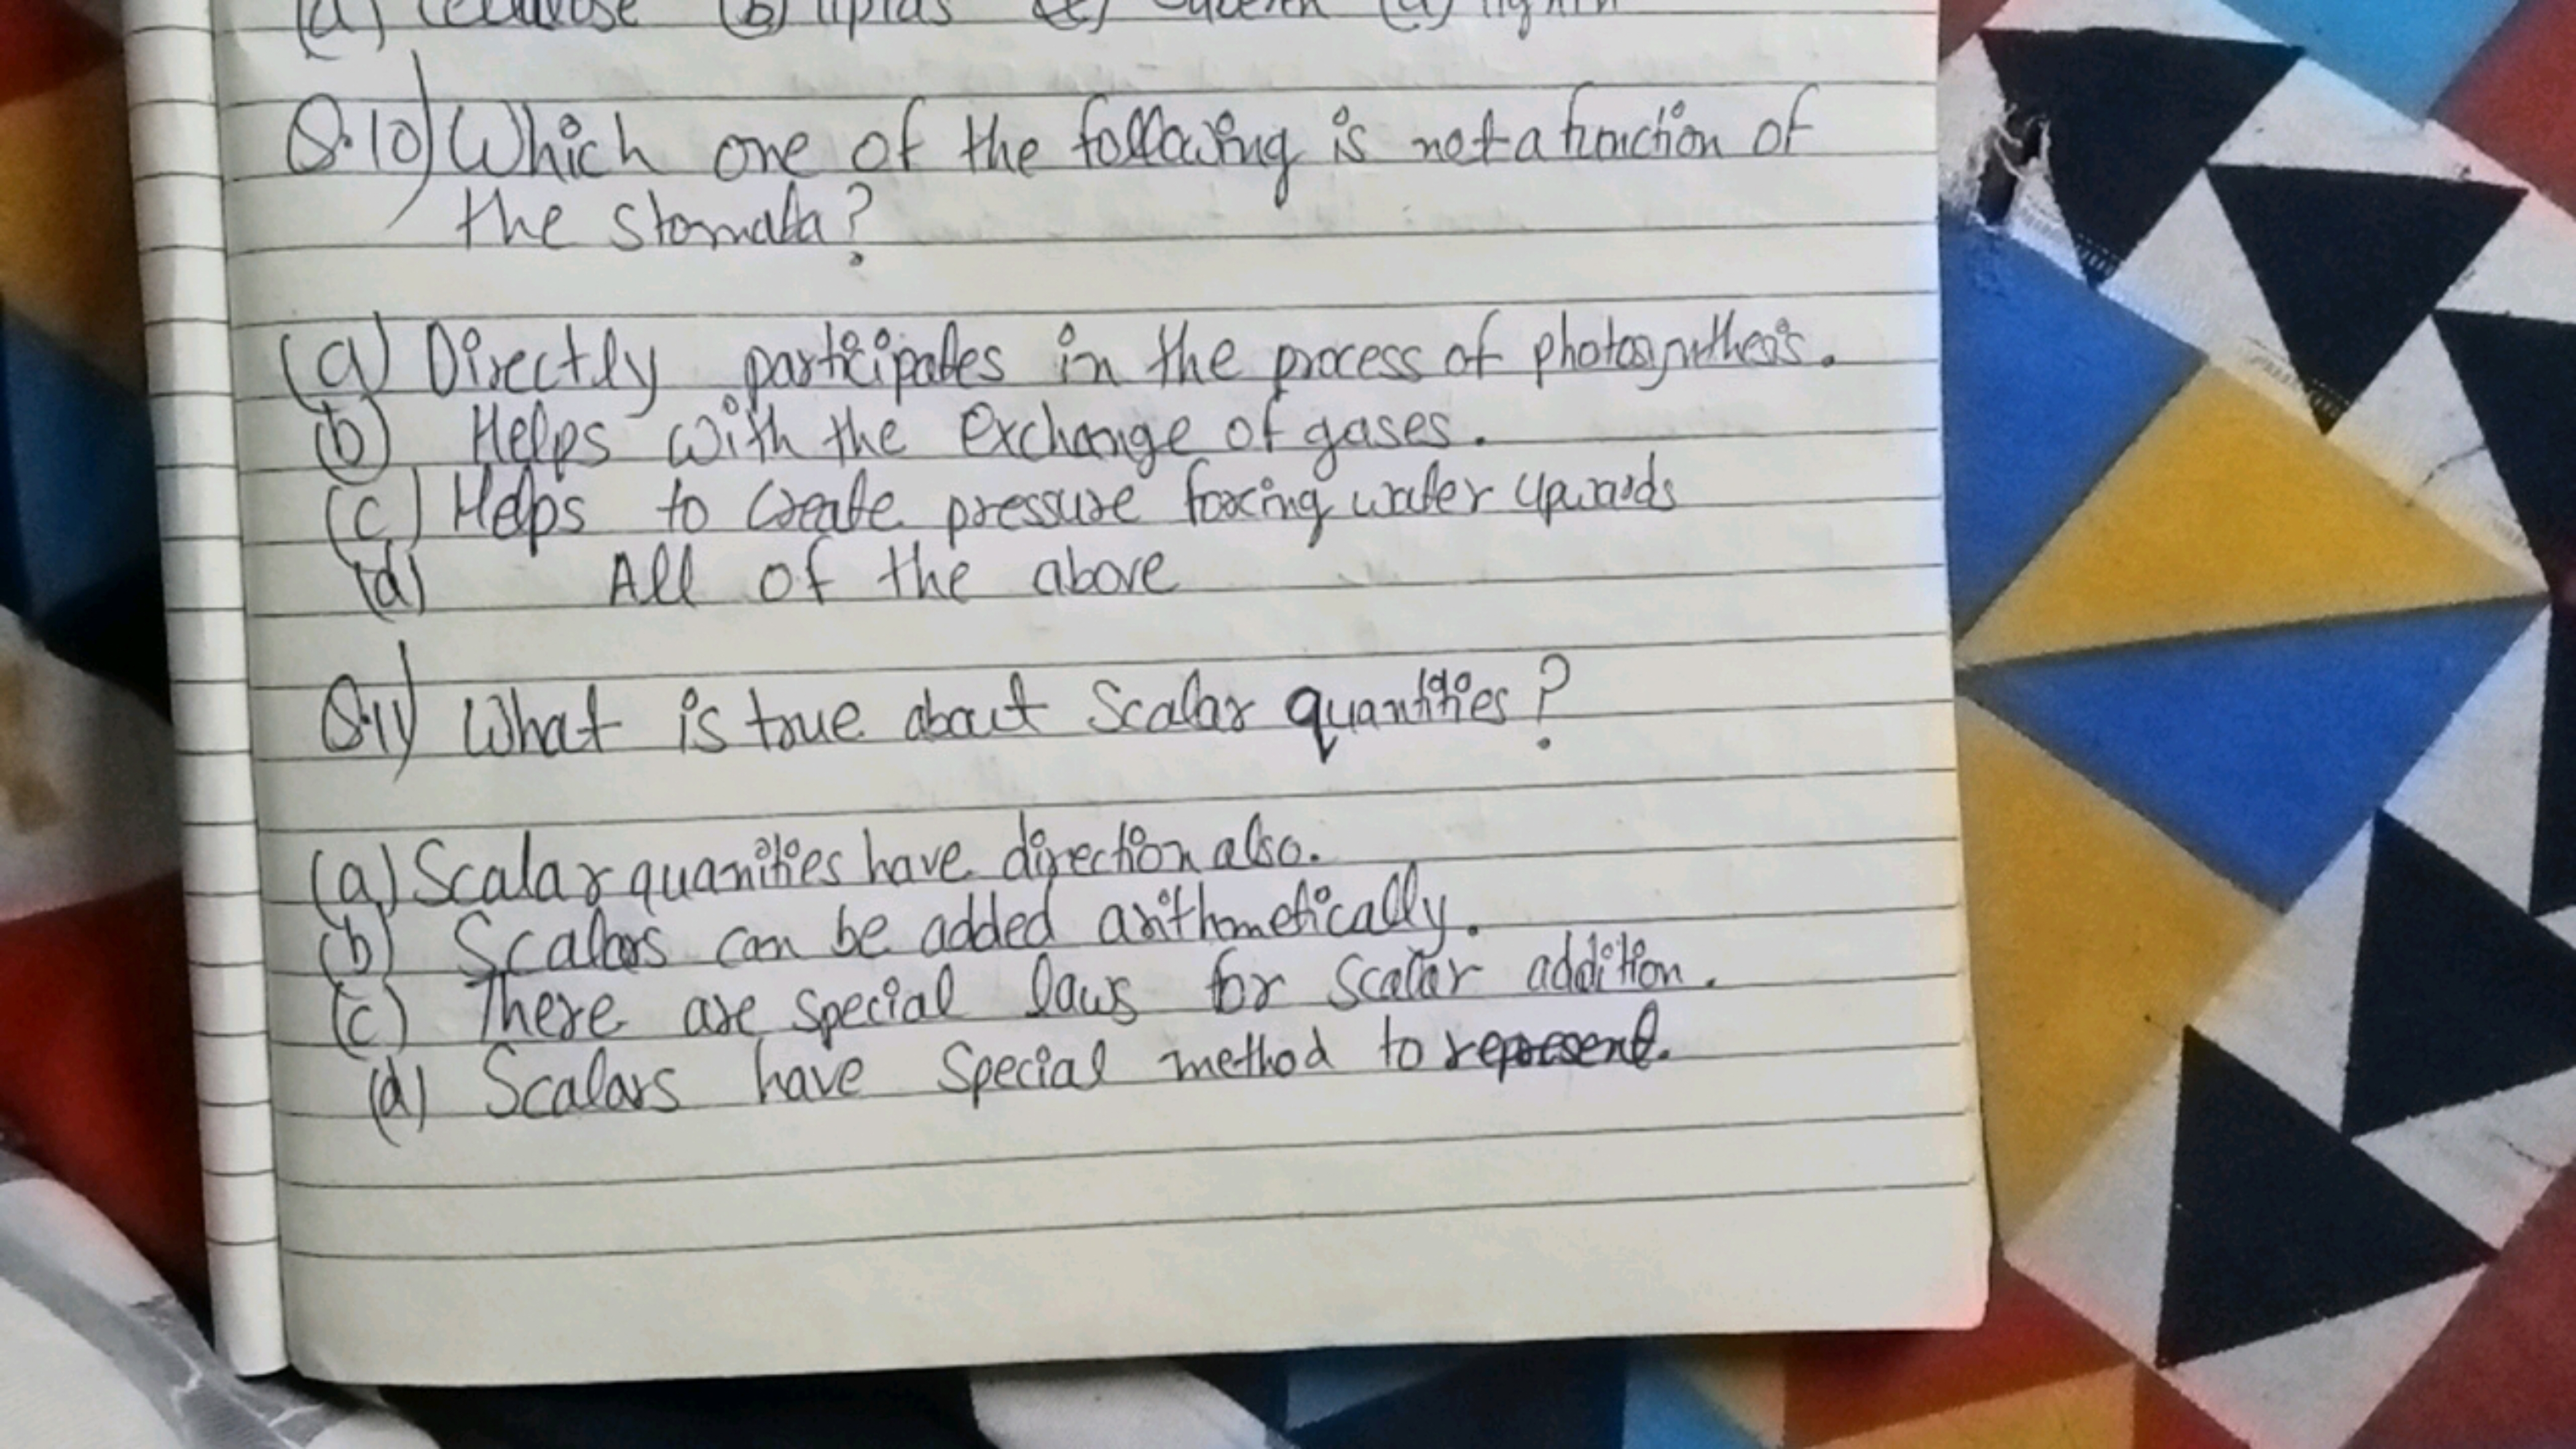 (a) Cellulose (b) lipids (c) Suberin (d) lignin
Q.10) Which one of the following is not a function of
the stomata?
(a) Directly participates in the process of photosynthesis.
(b) Helps with the exchange of gases.
(c) Helps to create pressure forcing water upwards
(d) All of the above
Q.11) What is true about Scalar quantities?
(a) Scalar quanities have direction also.
(b) Scalars can be added arithmetically.
(c) There are special laws for scalar addition.
(d) Scalars have Special method to represent.